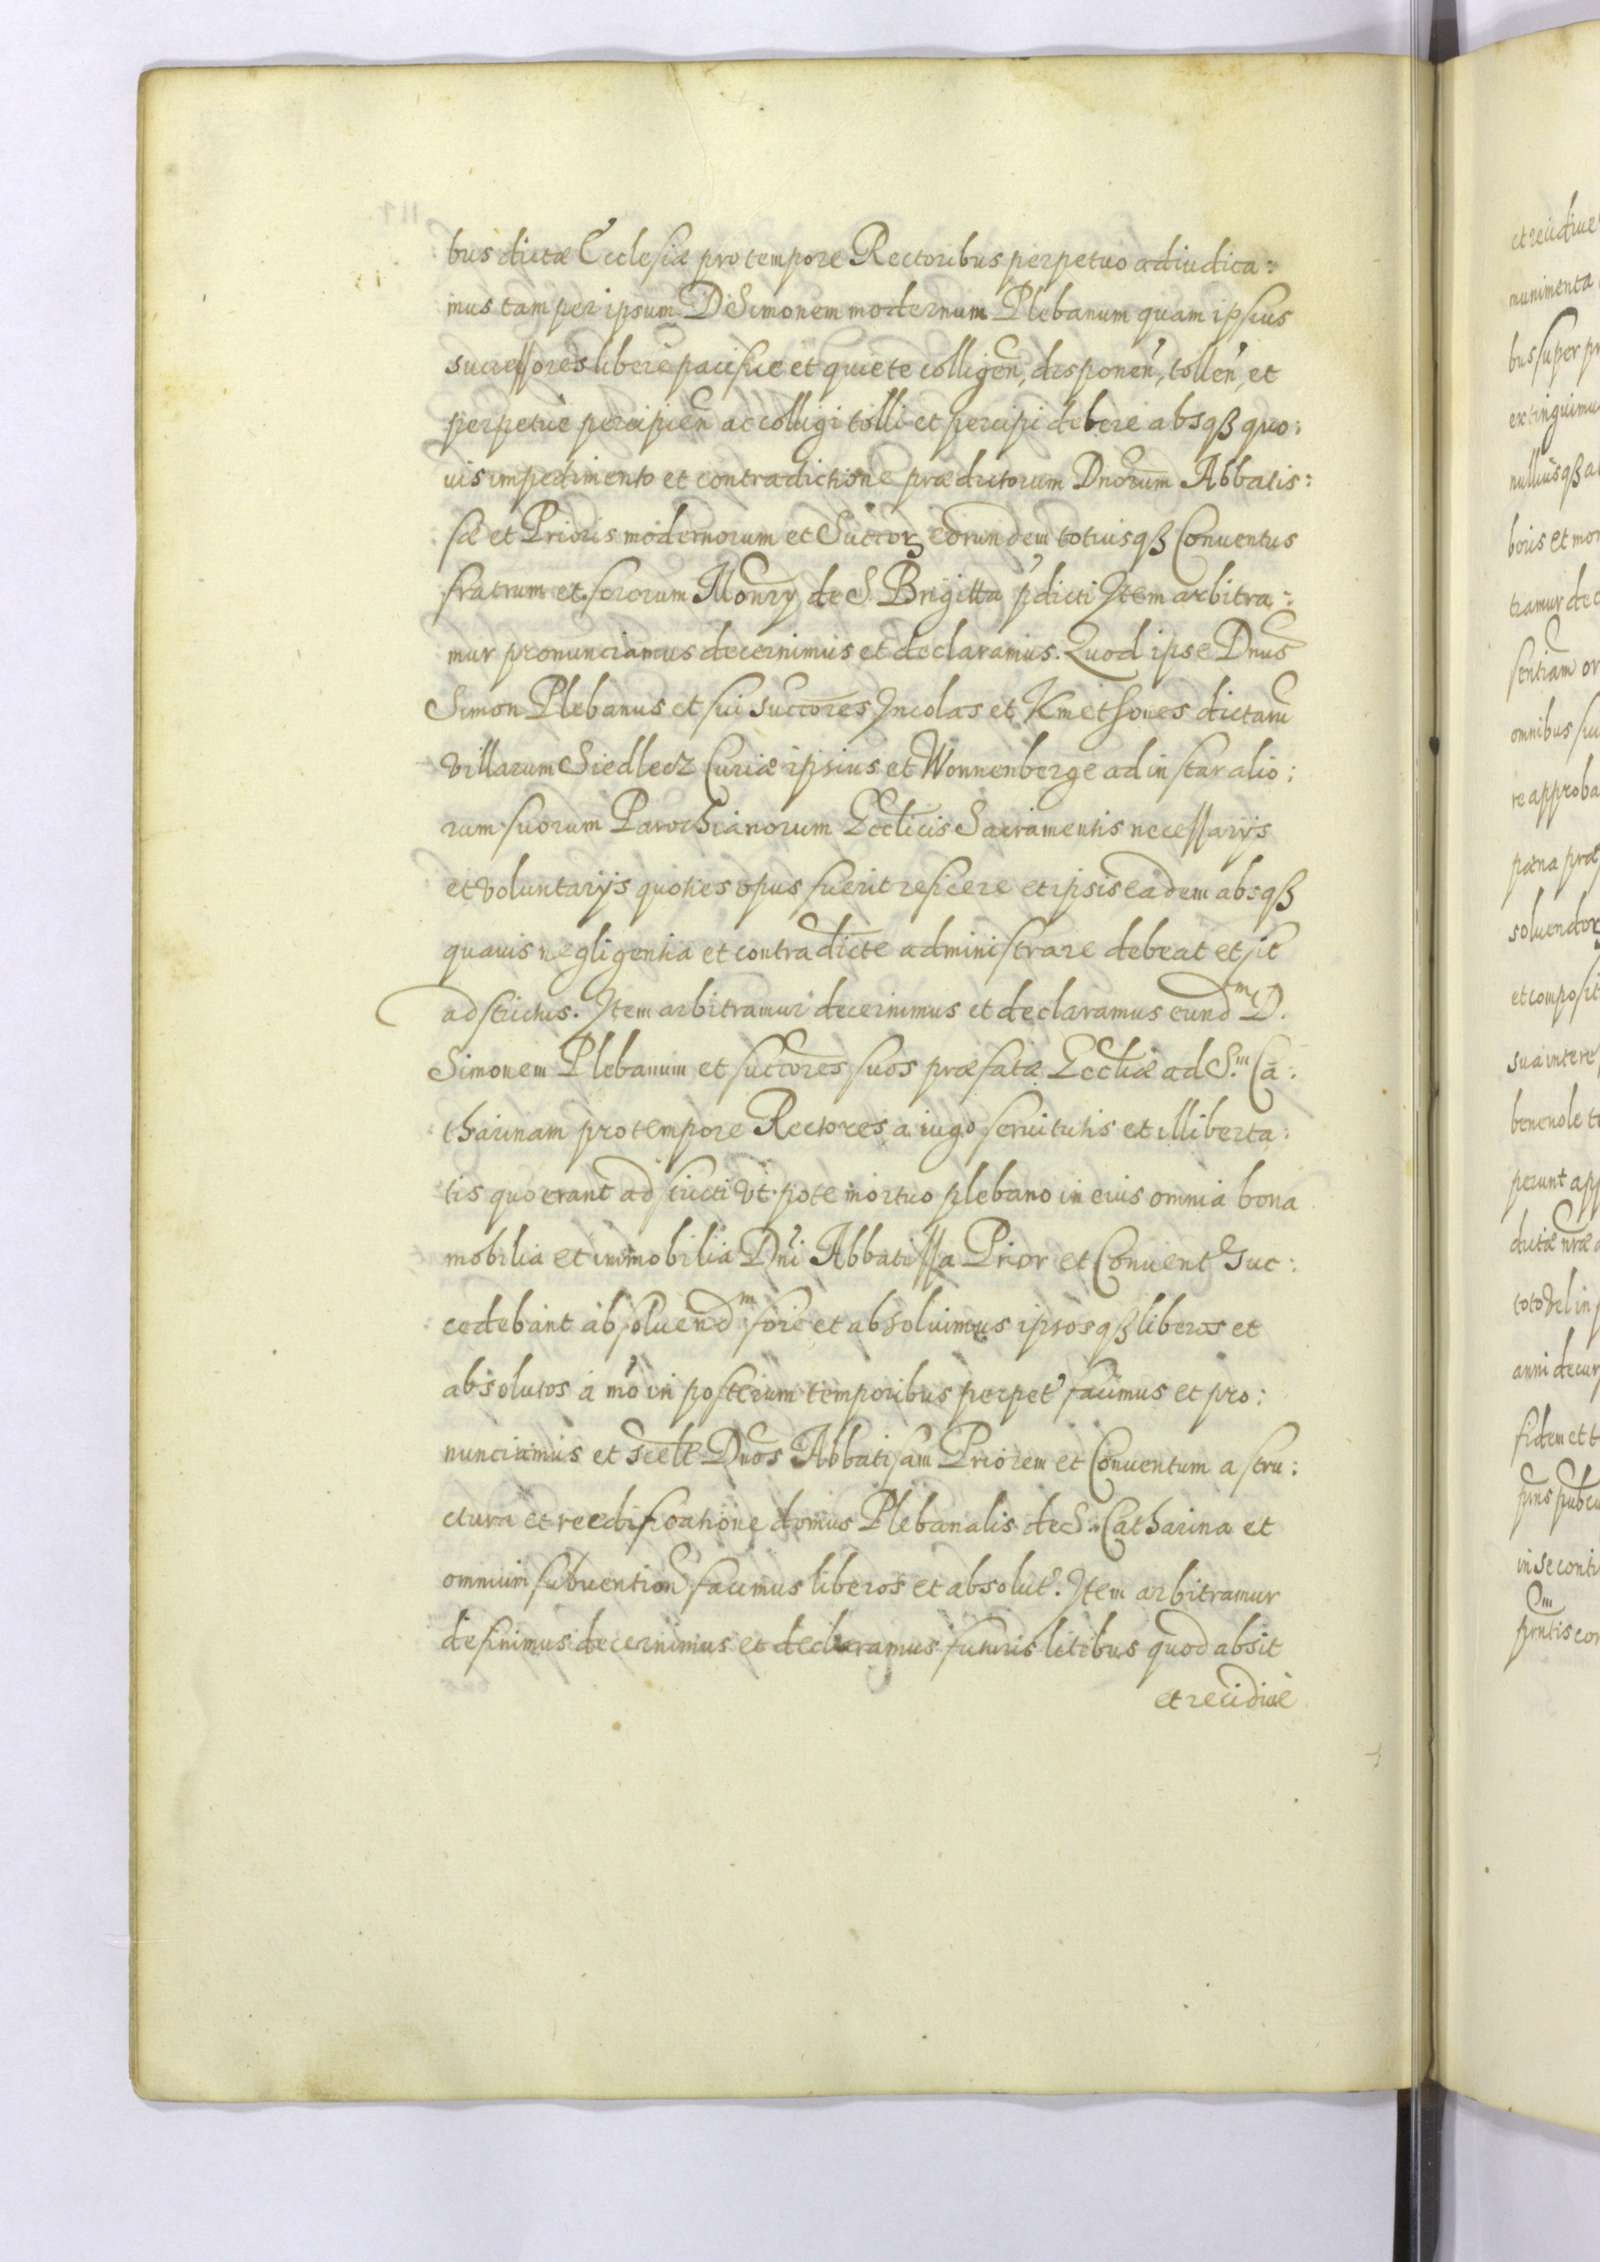 bus dictæ Ecclesiæ pro tempore Rectoribus perpetuo adiudica:
mus tam per ipsum D Simonem modernum Plebanum quam ipsius
successores libere pacifice et quiete colligen, disponen, tollen, et
perpetue percipien ac colligi tolli et percipi debere absqß quo:
uis impedimento et contradictione prædictorum Dnorum Abbatis:
sæ et Prioris modernorum et Succor eorundem totiusqß Conuentus
fratrum et sororum Monry de S. Brigitta pdicti Item arbitra:
mur pronunciamus decernimus et declaramus. Quod ipse Dnus
Simon Plebanus et sui succores Incolas et Kmethones dictaru
villarum Siedlecz Curiæ ipsius et Wonnenberge ad instar alio:
rum suorum Parochianorum Ecclicis Sacramentis necessarijs
et voluntarijs quoties opus fuerit reficere et ipsis eadem absqß
quauis negligentia et contradicte administrare debeat et sit
adstrictus. Item arbitramur decernimus et declaramus eundm D.
Simonem Plebanum et succores suos præfatæ Eccliæ ad S.m Ca:
tharinam pro tempore Rectores a iugo seruitutis et illiberta:
tis quo erant adstricti vt pote mortuo plebano in eius omnia bona
mobilia et immobilia Dni Abbatissa Prior et Conuent suc:
cedebant absoluendm fore et absoluimus ipsosqß liberos et
absolutos a mo in posterum temporibus perpet facimus et pro:
nunciamus et Dnos Abbatisam Priorem et Conuentum a stru:
ctura et reedificatione domus Plebanalis de S. Catharina et
omnium subuention facimus liberos et absolut. Item arbitramur
definimus decernimus et declaramus futuris litibus quod absit
et recidiue